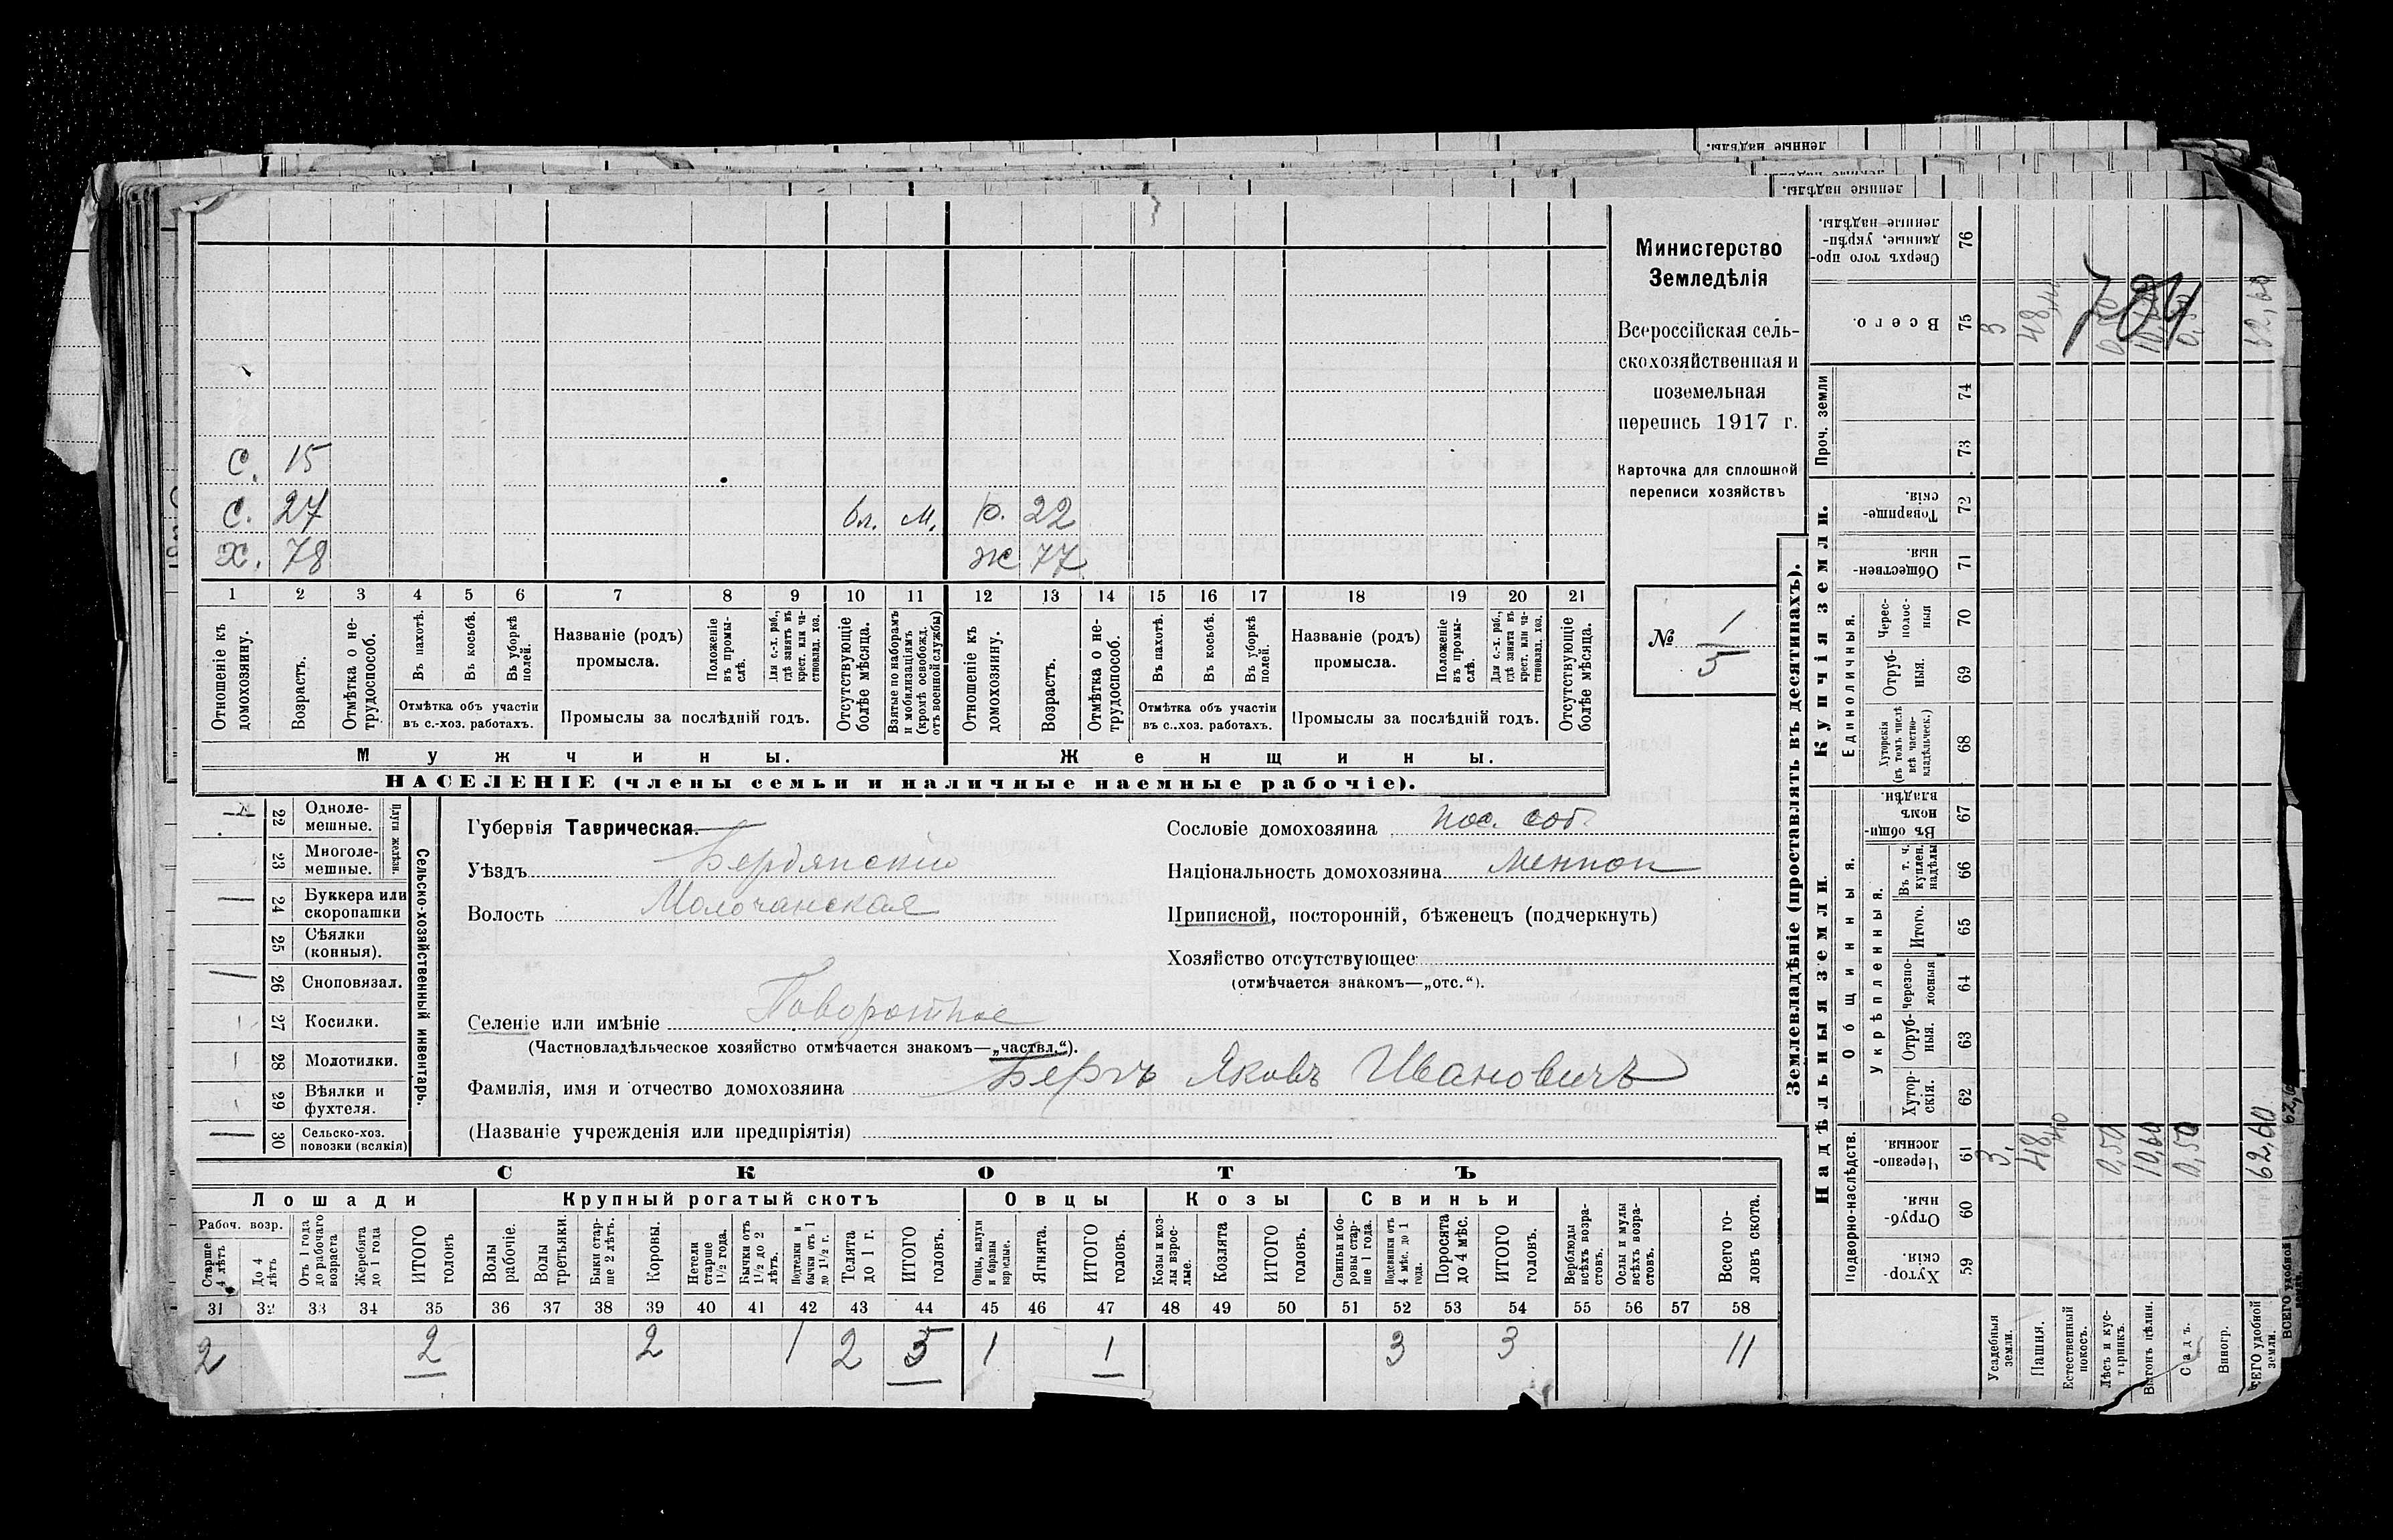 Министерство
Земледѣлія
Всероссійская сель-
скохозяйственная и
поземельная
перепись 1917 г.
Карточка для сплошной
переписи хозяйствъ
№ 1
5
С. 15
С. 27 бл. м. р. 22
Х. 78 ж 77
1 2 3 4 5 6 7 8 9 10 11 12 13 14 15 16 17 18 19 20 21
Отношеніе къ домохозяину.
Возрастъ.
Отмѣтка о не-трудоспособ.
Въ пахотѣ.
Въ косьбѣ.
Въ уборкѣ полей.
Отмѣтка объ участіи
въ с.-хоз. работахъ.
Названіе (родъ)
промысла.
Положеніе въ промы-слѣ.
Для с.-х. раб., гдѣ занятъ въ крест. или ча-стновлад. хоз.
Промыслы за послѣдній годъ.
Отсутствующіе болѣе мѣсяца.
Взятые по наборамъ и мобилизаціямъ (кромѣ освобожд. отъ военной службы)
Отношеніе къ домохозяину.
Возрастъ.
Отмѣтка о не-трудоспособ.
Въ пахотѣ.
Въ косьбѣ.
Въ уборкѣ полей.
Отмѣтка объ участіи
въ с..хоз. работахъ.
Названіе (родъ)
промысла.
Положеніе въ промы-слѣ.
Для с.-х. раб., гдѣ занята въ крест. или ча-стновлад. хоз.
Промыслы за послѣдній годъ.
Отсутствующіе болѣе мѣсяца.
Мужчины.
Женщины.
НАСЕЛЕНІЕ (члены семьи и наличные наемные рабочіе).
22 Одноле-мешные.
23 Многоле-мешные.
Плуги желѣзн.
24 Буккера или скоропашки
25 Сѣялки (конныя).
26 Сноповязал.
27 Косилки.
28 Молотилки.
29 Вѣялки и фухтеля.
30 Сельско-хоз. повозки (всякія)
Сельско-хозяйственный инвентарь.
Губернія Таврическая.
Уѣздъ Бердянскій
Волость Молочанская
Селеніе или имѣніе Поворотное
(Частновладѣльческое хозяйство отмѣчается знакомъ—„частвл.“).
Фамилія, имя и отчество домохозяина Бергъ Яковъ Ивановичъ
(Названіе учрежденія или предпріятія)
Сословіе домохозяина пос. соб.
Національность домохозяина Меннон
Приписной, посторонній, бѣженецъ (подчеркнуть)
Хозяйство отсутствующее
(отмѣчается знакомъ—„отс.“).
СКОТЪ
Лошади
Крупный рогатый скотъ
Овцы
Козы
Свиньи
Рабоч. возр.
Старше 4 лѣтъ
До 4 лѣтъ
Отъ 1 года до рабочаго возраста
Жеребята до 1 года
ИТОГО головъ
Волы рабочіе.
Волы третьяки.
Быки стар-ше 2 лѣтъ.
Коровы.
Нетели старше 1½ года.
Бычки отъ 1½ до 2 лѣтъ.
Подтелки и бычки отъ 1 до 1½ г.
Телята до 1 г.
ИТОГО головъ.
Овцы, валухи и бараны взрослые.
Ягнята.
ИТОГО головъ.
Козы и коз-лы взрос-лые.
Козлята
ИТОГО головъ.
Свиньи и бо-ровы стар-ше 1 года.
Подсвинки отъ 4 мѣс. до 1 года.
Поросята до 4 мѣс.
ИТОГО головъ.
Верблюды всѣхъ возра-стовъ.
Ослы и мулы всѣхъ возра-стовъ.
Всего го-ловъ скота.
31 32 33 34 35 36 37 38 39 40 41 42 43 44 45 46 47 48 49 50 51 52 53 54 55 56 57 58
2 2 2 1 2 5 1 1 3 3 11
Землевладѣніе (проставлять въ десятинахъ).
Купчія земли.
Надѣльныя земли.
Сверхъ того про-данные, укрѣп-ленные надѣлы. 76
Всего. 75 3 48,40 0,50 10,60 0,50 62,60
704
Проч. земли 74 73
Товарище-скія. 72
Обществен-ныя. 71
Единоличныя.
Черес-полос-ныя 70
Отруб-ныя. 69
Хуторскія (въ томъ числѣ всѣ частно-владѣльческ.) 68
Общинныя.
Въ общин-номъ владѣн. 67
Укрѣпленныя.
Въ т. ч. куплен. надѣлы 66
Итого. 65
Черезпо-лосныя 64
Отруб-ныя. 63
Хутор-скія. 62
Подворно-наслѣдств.
Черезпо-лосныя 61 3, 48,40 0,50 10,60 0,50 62,60
Отруб-ныя. 60
Хутор-скія. 59
Усадебныя земли.
Пашня.
Естественный покосъ.
Лѣсъ и кус-тарникъ.
Выгонъ цѣлин.
Садъ.
Виногр.
ВСЕГО удобной земли.